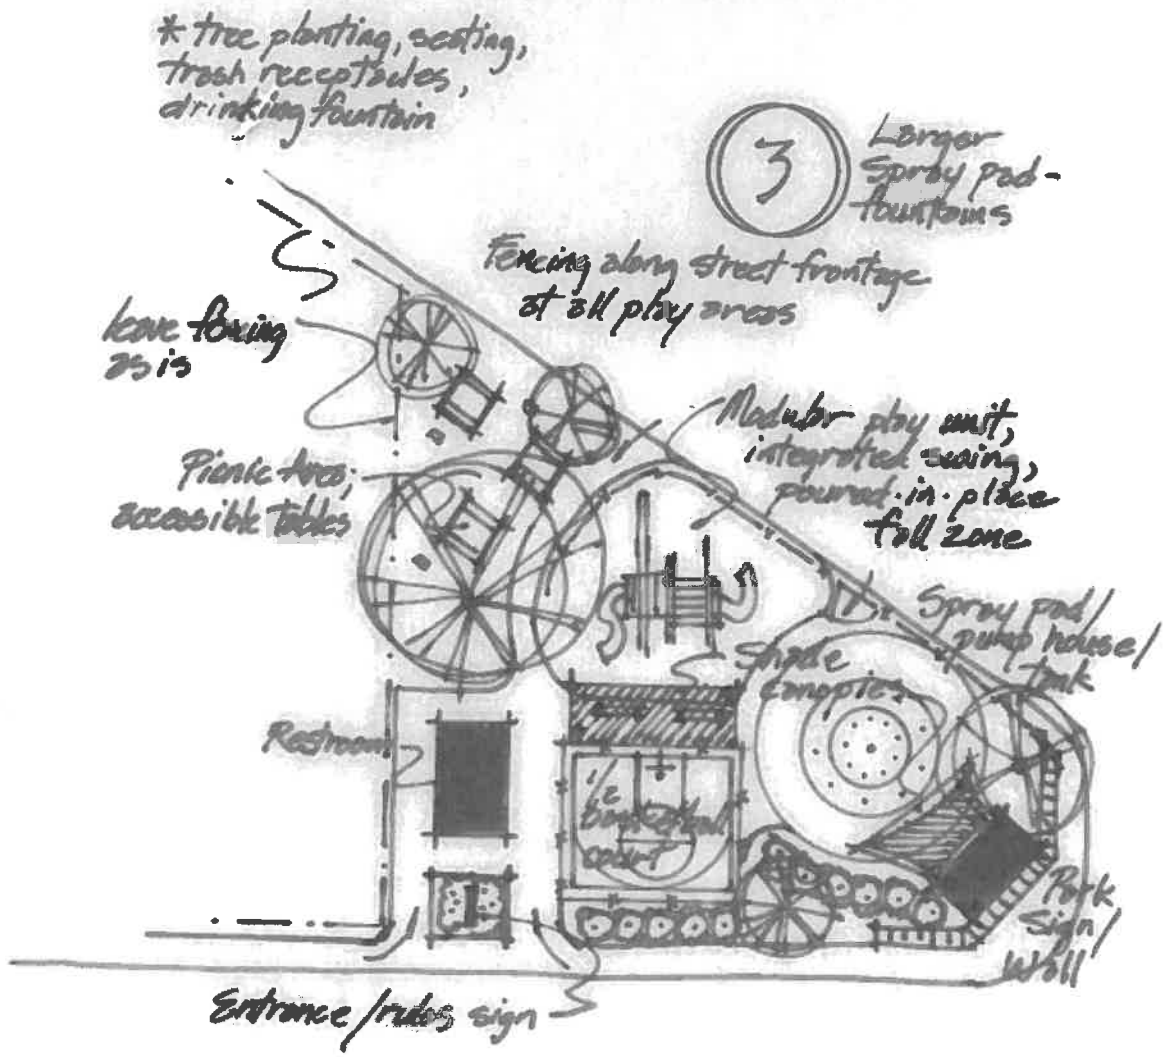 * tree planting, seating,
trash receptacles,
drinking fountain
3
Larger
Spray pad-
fountains
Fencing along street frontage
at all play areas
leave fencing
as is
Modular play unit,
integrated swing,
poured-in-place
fall zone
Picnic Area;
accessible tables
Spray pad/
pump house/
tank
Shade
canopies
Restroom
1/2
basketball
court
Park
Sign/
Wall
Entrance/rules sign